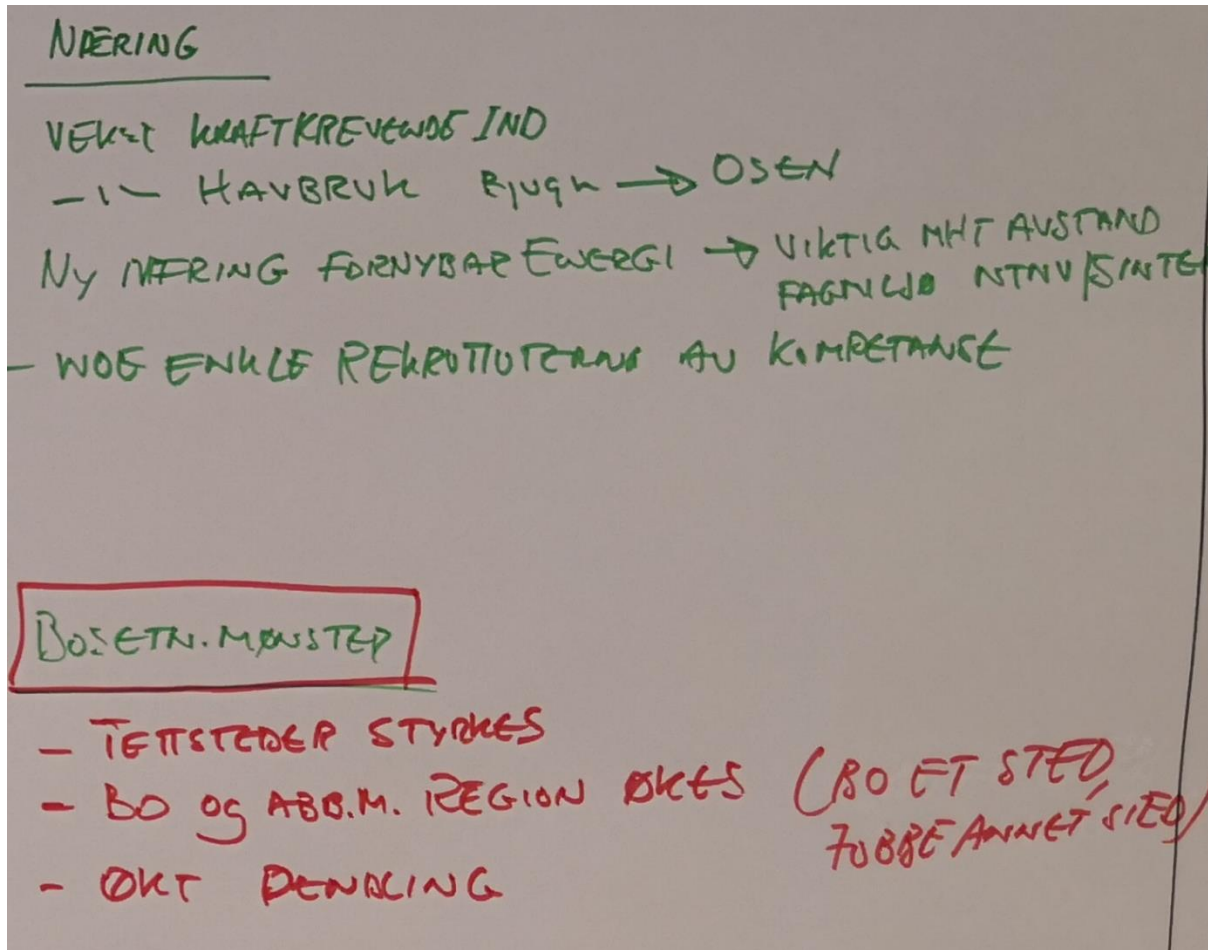 NÆRING
VEKST KRAFTKREVENDE IND
-"- HAVBRUK Bjugn → OSEN
NY NÆRING FORNYBAR ENERGI → VIKTIG MHT AVSTAND
FAGMILJØ NTNU/SINTE
- ENKLE REKRUTTERING AV KOMPETANSE
BOSETN.MØNSTER
- TETTSTEDER STYRKES
- BO og ARB.M. REGION ØKES (BO ET STED,
JOBBE ANNET STED)
- ØKT PENDLING